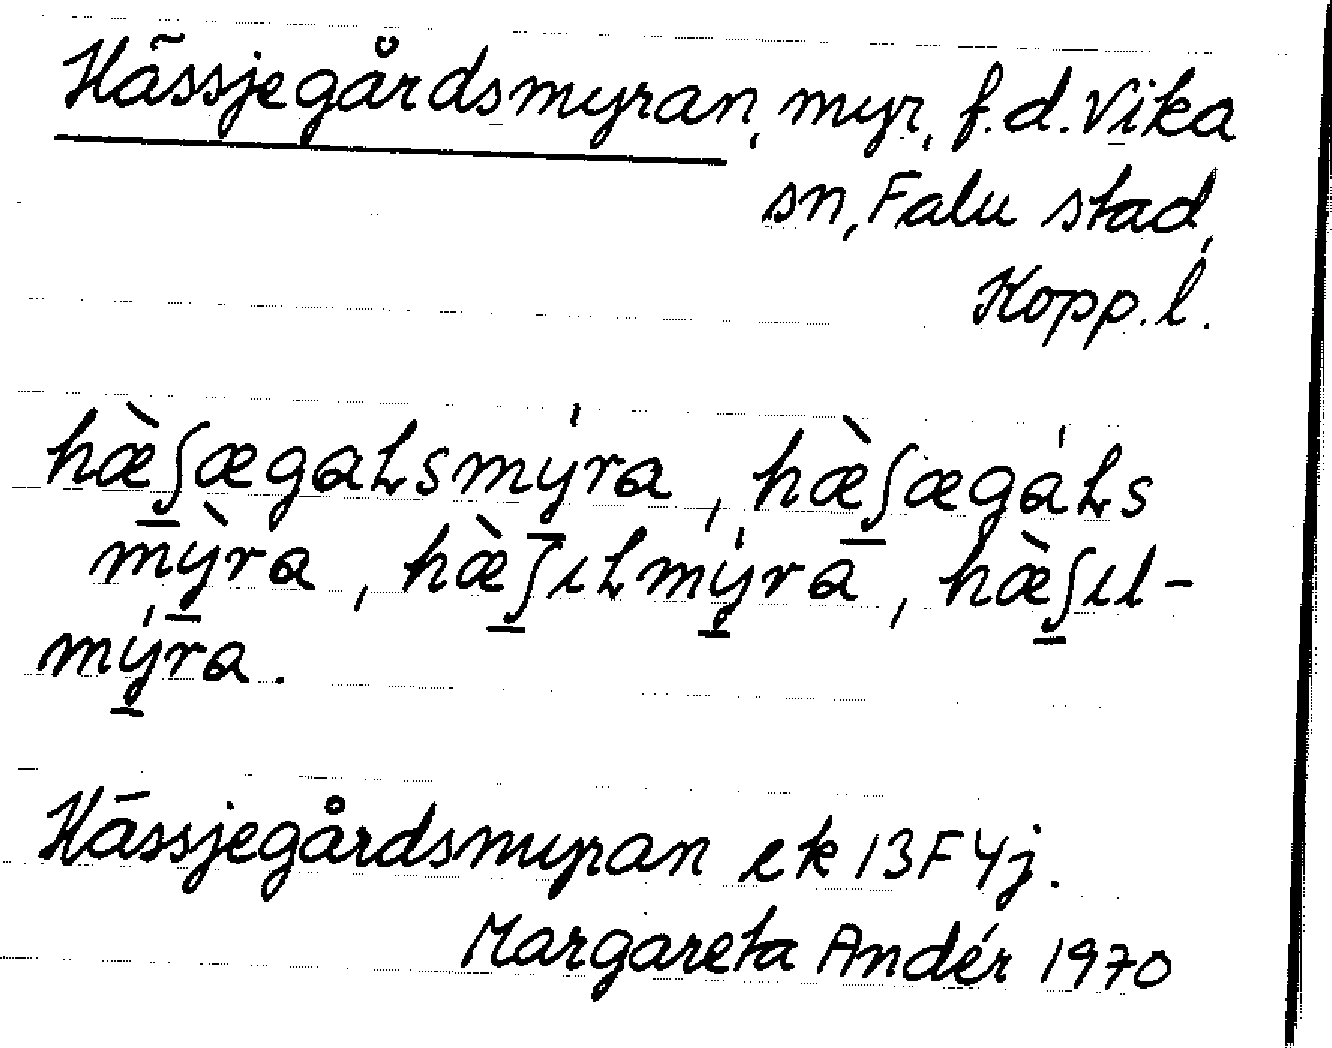 Hässjegårdsmyran, myr, f.d. Vika
sn, Falu stad,
Kopp.l.
hæ̀ʃægaɫsmýra, hæ̀ʃægáɫs
mỳra, hæ̀ʃıɫmýra, hæ̀ʃıl-
mýra.
Hässjegårdsmyran ek 13F4j.
Margareta Andér 1970